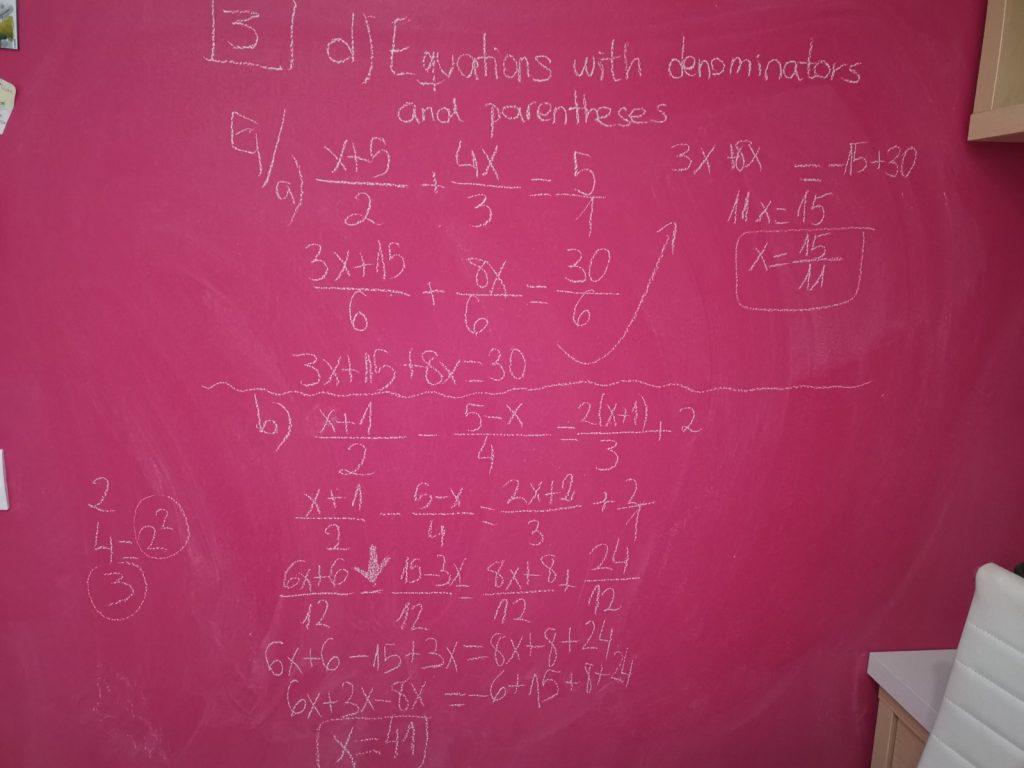 3 d) Equations with denominators
and parentheses
E/
a) (x+5)/2 + 4x/3 = 5/1
(3x+15)/6 + 8x/6 = 30/6
3x+15+8x=30
3x+8x = -15+30
11x=15
x=15/11
b) (x+1)/2 - (5-x)/4 = 2(x+1)/3 + 2
(x+1)/2 - (5-x)/4 = (2x+2)/3 + 2/1
(6x+6)/12 - (15-3x)/12 = (8x+8)/12 + 24/12
6x+6-15+3x=8x+8+24
6x+3x-8x = -6+15+8+24
x=41
2
4=2²
3